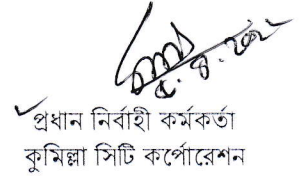 প্রধান নির্বাহী কর্মকর্তা
কুমিল্লা সিটি কর্পোরেশন